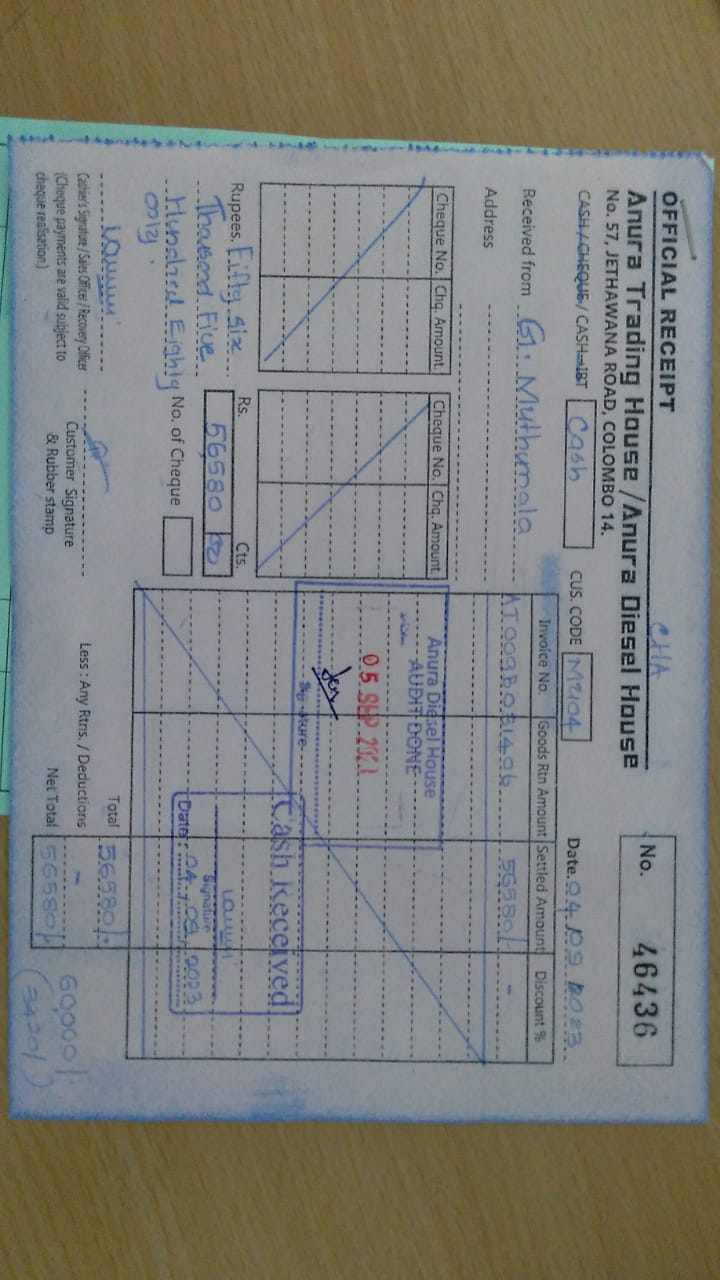 OFFICIAL RECEIPT
CHA
Anura Trading House / Anura Diesel House
No. 57, JETHAWANA ROAD, COLOMBO 14.
No. 46436
CASH / CHEQUE / CASH - IBT Cash
CUS. CODE M2104
Date. 04/09/2023
Received from G. Muthumala
Address
Cheque No. Chq. Amount
Cheque No. Chq. Amount
Invoice No. Goods Rtn Amount Settled Amount Discount %
AT009B031496 56580/- -
Anura Diesel House
AUDIT DONE
05 SEP
Signature
Cash Received
Signature
Date: 04/09/2023
Rupees. Fifty six
Thousand Five
Hundred Eighty
only.
Rs. Cts.
56,580
No. of Cheque
Total 56580/-
Less : Any Rtns. / Deductions -
Net Total 56580/-
60,000/-
(3420/-)
Cashier's Signature / Sales Officer / Recovery Officer
(Cheque payments are valid subject to
cheque realisation.)
Customer Signature
& Rubber stamp